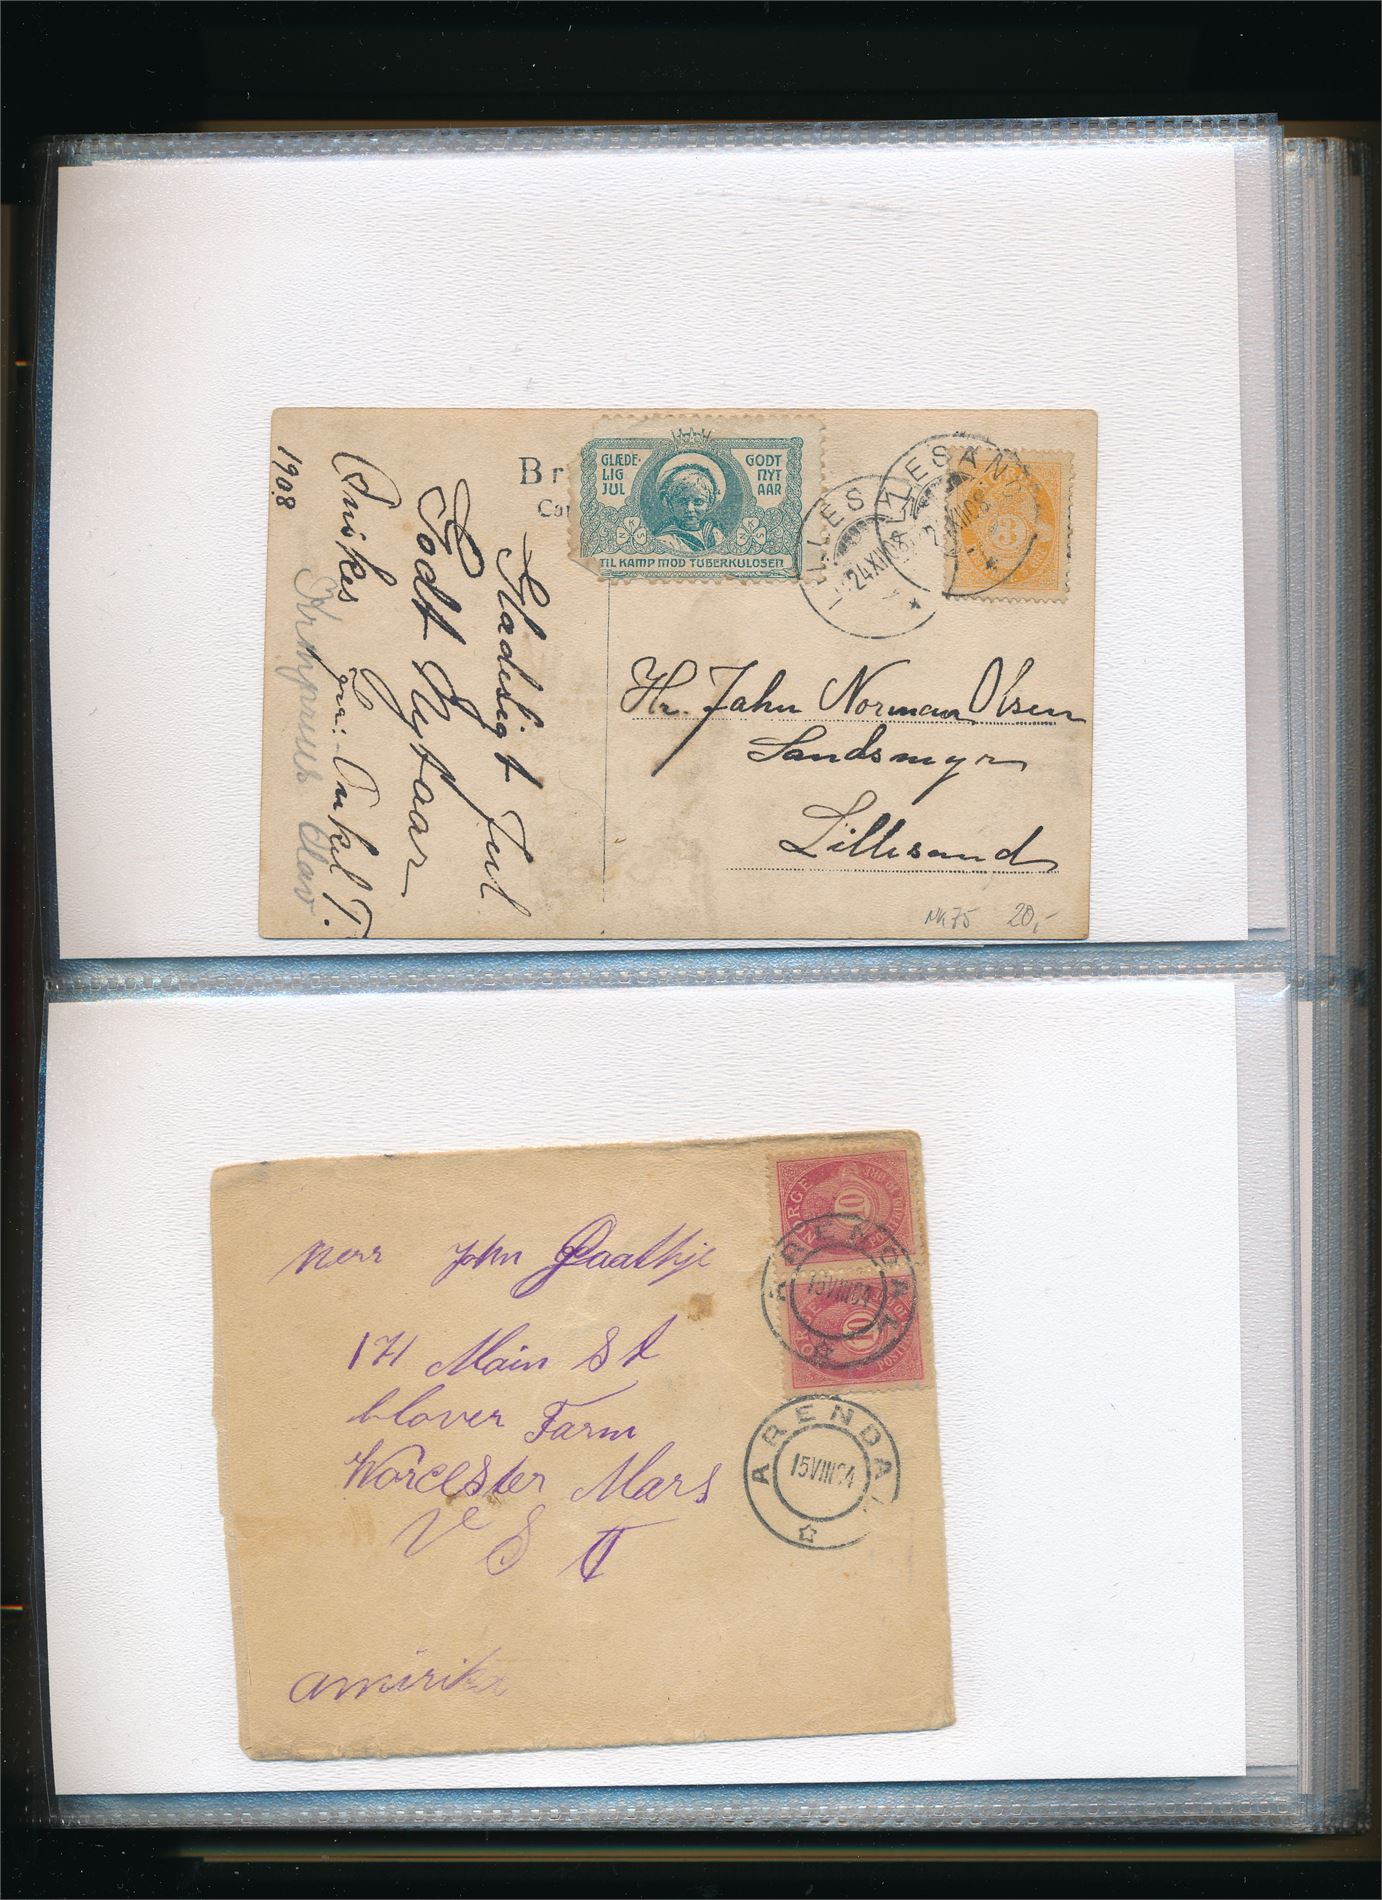 1908
Glædeligt Jul
Godt Nytaar
Ønskes fra: Onkel T.
Br
Ca
GLÆDE-
LIG
JUL
GODT
NYT
AAR
K N S
K N S
TIL KAMP MOD TUBERKULOSEN
LILLESAND
24 XII 08
LILLESAND
3
Hr. John Norman Olsen
Sandsmyr
Lillesand
NK75 20,-
NORGE
10
NORGE
10
ARENDAL
15 VIII 04
ARENDAL
15 VIII 04
Herr John
171 Main St
Clover Farm
Worcester Mars
U S A
amirika